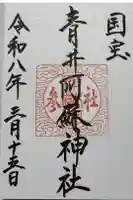 国宝
青井阿蘇神社
令和八年三月十五日